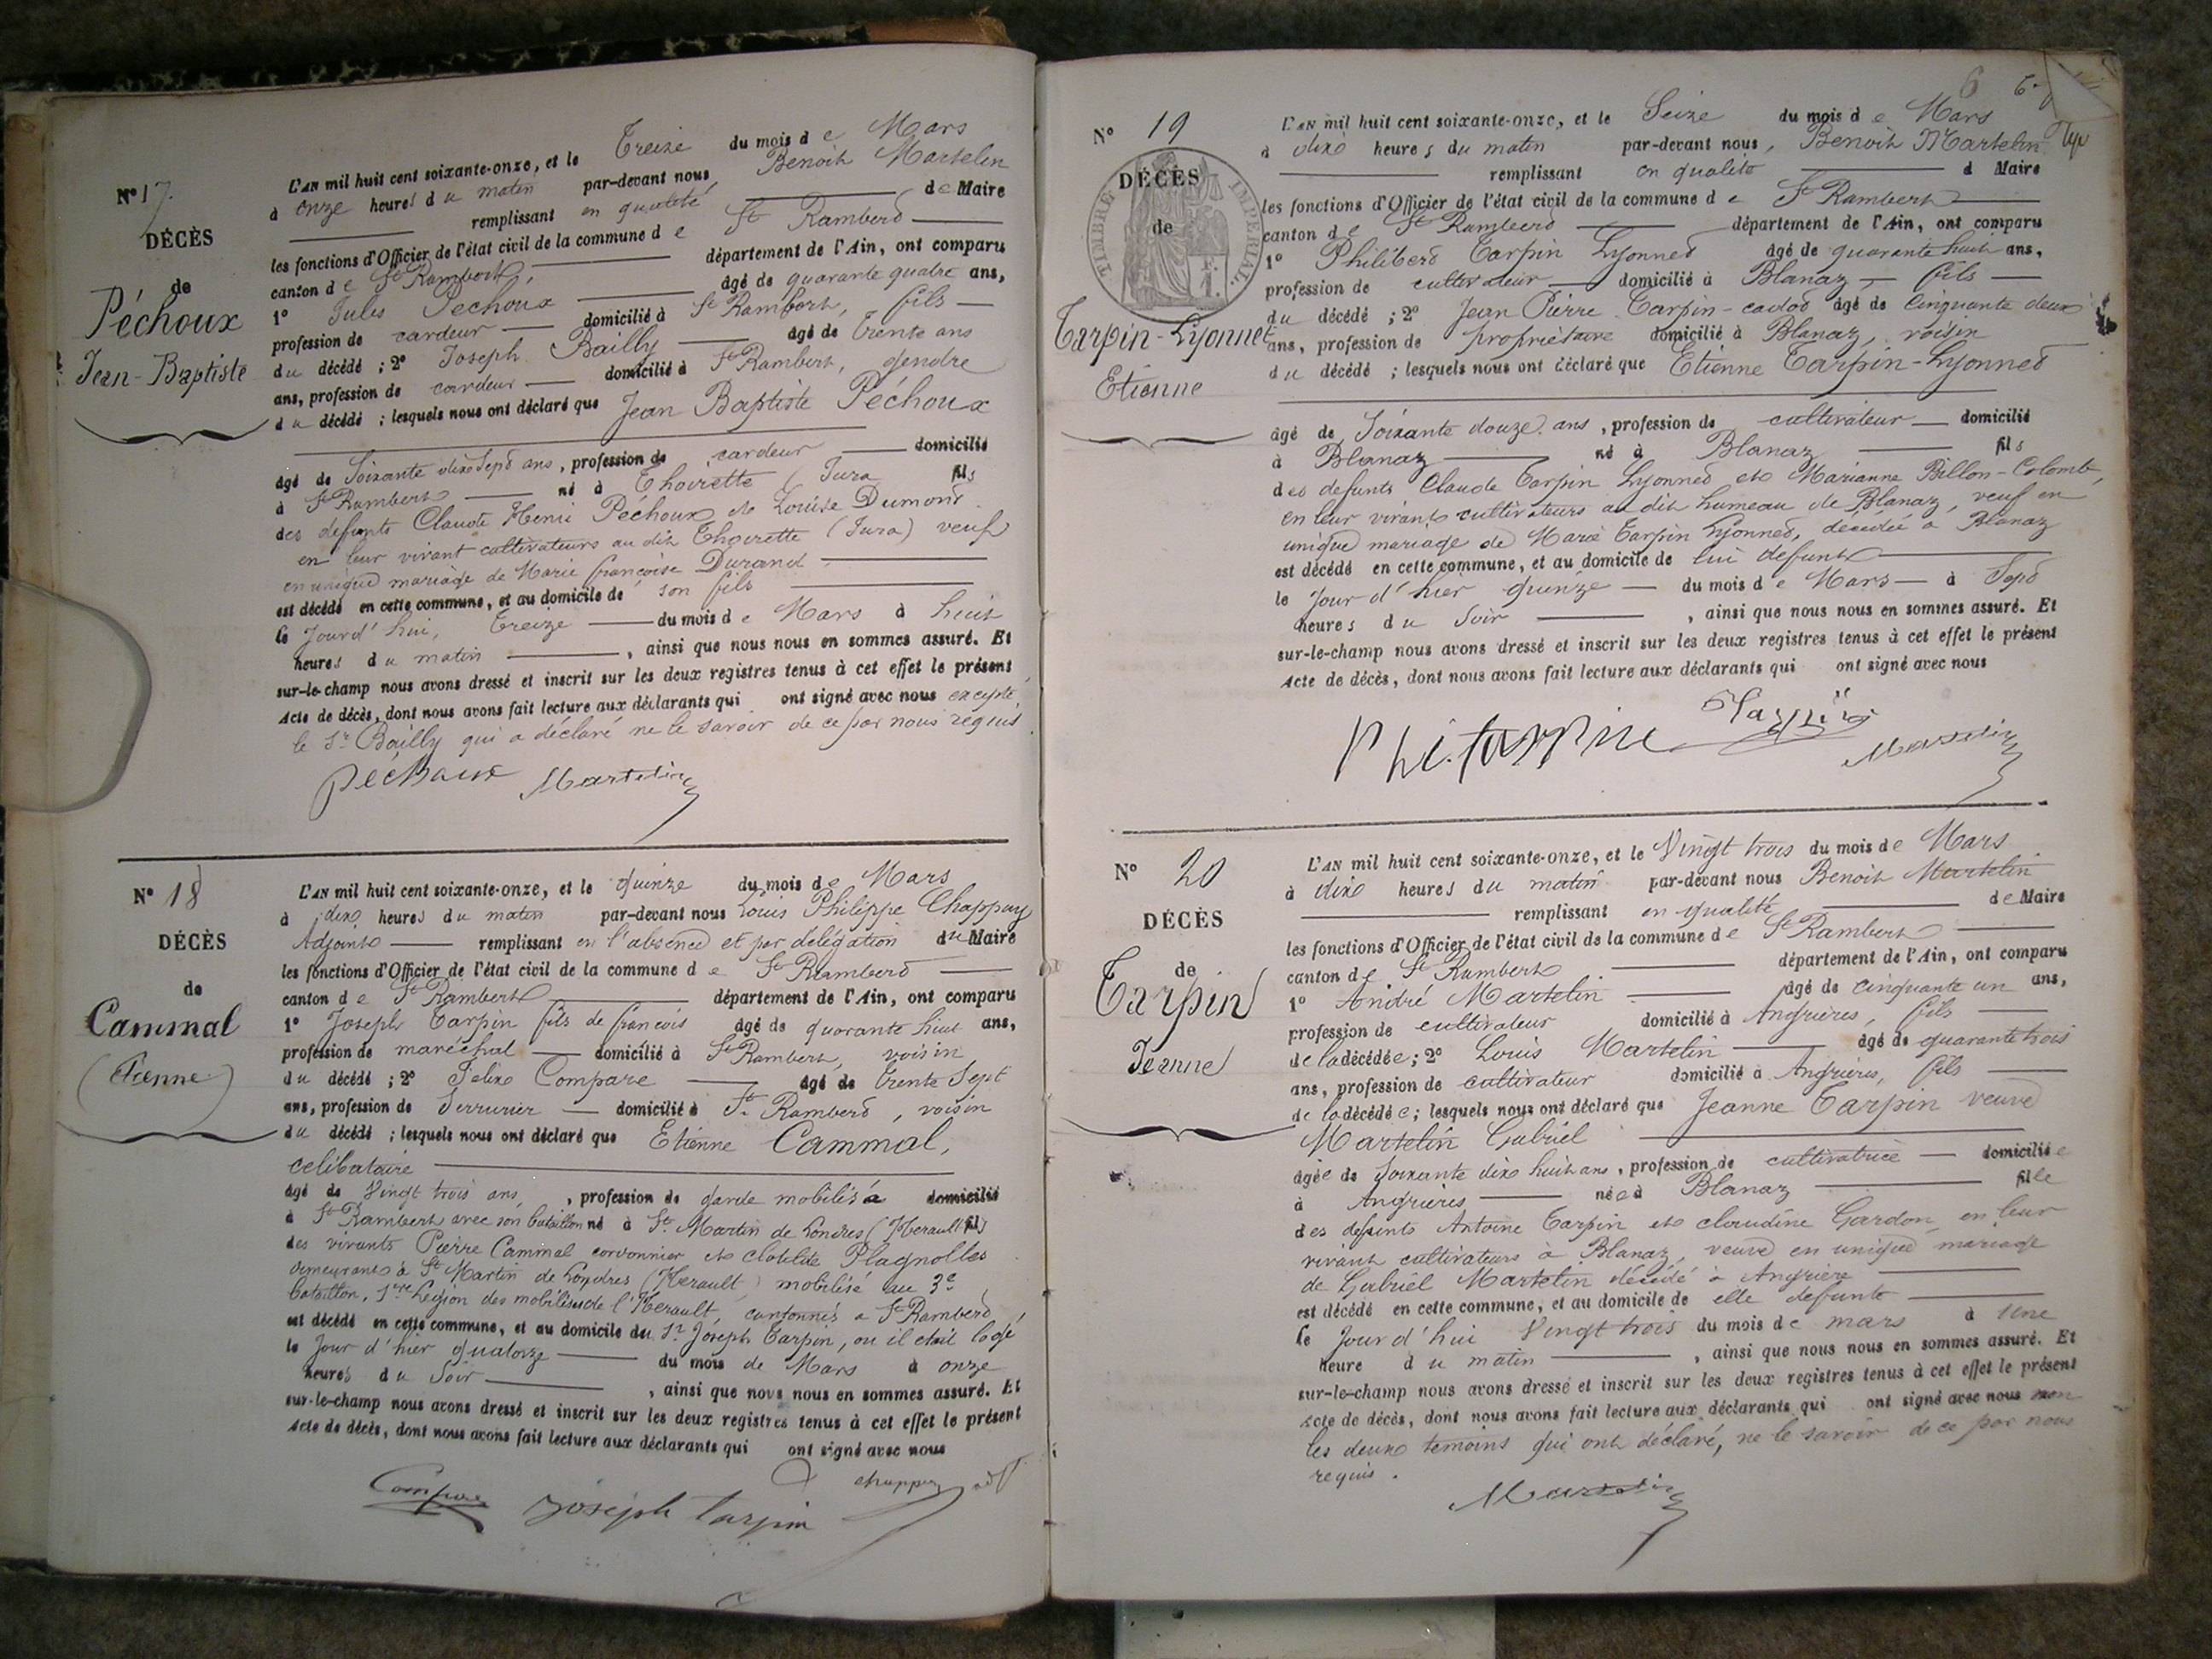 N° 17.
DÉCÈS
de
Péchoux
Jean-Baptiste
L'AN mil huit cent soixante-onze, et le Treize du mois de Mars
à onze heures du matin par-devant nous Benoit Martelin
remplissant en qualité de Maire
les fonctions d'Officier de l'état civil de la commune de St Rambert
canton de St Rambert, département de l'Ain, ont comparu
1° Jules Pechoux âgé de quarante quatre ans,
profession de cardeur domicilié à St Rambert, fils
du décédé ; 2° Joseph Bailly âgé de trente ans
ans, profession de cardeur domicilié à St Rambert, gendre
du décédé ; lesquels nous ont déclaré que Jean Baptiste Péchoux
âgé de Soixante dix Sept ans, profession de cardeur domicilié
à St Rambert né à Thoirette (Jura fils
des defunts Claude Henri Péchoux et Louise Dumond
en leur vivant cultivateurs au dit Thoirette (Jura) veuf
en unique mariage de Marie françoise Durand
est décédé en cette commune, et au domicile de son fils
le Jourd'hui, Treize du mois de Mars à huit
heures du matin, ainsi que nous nous en sommes assuré. Et
sur-le-champ nous avons dressé et inscrit sur les deux registres tenus à cet effet le présent
Acte de décès, dont nous avons fait lecture aux déclarants qui ont signé avec nous excepté
le Sr Bailly qui a déclaré ne le savoir de ce par nous requis
péchoux Martelin
N° 18
DÉCÈS
de
Cammal
(Etienne)
L'AN mil huit cent soixante-onze, et le quinze du mois de Mars
à dix heures du matin par-devant nous Louis Philippe Chappuy
Adjoint remplissant en l'absence et par délégation du Maire
les fonctions d'Officier de l'état civil de la commune de St Rambert
canton de St Rambert département de l'Ain, ont comparu
1° Joseph Tarpin fils de francois âgé de quarante huit ans,
profession de maréchal domicilié à St Rambert, voisin
du décédé ; 2° Felix Compare âgé de trente Sept
ans, profession de Serrurier domicilié à St Rambert, voisin
du décédé ; lesquels nous ont déclaré que Etienne Cammal,
celibataire
âgé de Vingt trois ans, profession de garde mobilisé domicilié
à St Rambert avec son bataillon né à St Martin de Londres (Herault) fils
des vivants Pierre Cammal cordonnier et clotilde Plagnolles
demeurant à St Martin de Londres (Herault) mobilisé au 3e
bataillon, 1ere Légion des mobilisés de l'Herault, cantonnés a St Rambert,
est décédé en cette commune, et au domicile du Sr Joseph Tarpin, ou il etait logé
le Jour d'hier quatorze du mois de Mars à onze
heures du Soir, ainsi que nous nous en sommes assuré. Et
sur-le-champ nous avons dressé et inscrit sur les deux registres tenus à cet effet le présent
Acte de décès, dont nous avons fait lecture aux déclarants qui ont signé avec nous
chappuy adt
Compare Joseph tarpin
6 6
N° 19
DÉCÈS
de
TIMBRE IMPERIAL
Tarpin-Lyonnet
Etienne
L'AN mil huit cent soixante-onze, et le Seize du mois de Mars
à dix heures du matin par-devant nous, Benoit Martelin
remplissant en qualité d Maire
les fonctions d'Officier de l'état civil de la commune de St Rambert
canton de St Rambert département de l'Ain, ont comparu
1° Philibert Tarpin Lyonnet âgé de quarante huit ans,
profession de cultivateur domicilié à Blanaz, fils
du décédé ; 2° Jean Pierre Tarpin-cadot âgé de Cinquante deux
ans, profession de propriétaire domicilié à Blanaz, voisin
du décédé ; lesquels nous ont déclaré que Etienne Tarpin-Lyonnet
âgé de Soixante douze ans, profession de cultivateur domicilié
à Blanaz né à Blanaz fils
des defunts Claude Tarpin Lyonnet et Marianne Billon-Colomb,
en leur vivant cultivateurs au dit hameau de Blanaz, veuf en
unique mariage de Marie Tarpin Lyonnet, décédée a Blanaz
est décédé en cette commune, et au domicile de lui defunt
le Jour d'hier quinze du mois de Mars à Sept
heures du Soir, ainsi que nous nous en sommes assuré. Et
sur-le-champ nous avons dressé et inscrit sur les deux registres tenus à cet effet le présent
Acte de décès, dont nous avons fait lecture aux déclarants qui ont signé avec nous
Phi. tarpin Tarpin Martelin
N° 20
DÉCÈS
de
Tarpin
Jeanne
L'AN mil huit cent soixante-onze, et le Vingt trois du mois de Mars
à dix heures du matin par-devant nous Benoit Martelin
remplissant en qualité de Maire
les fonctions d'Officier de l'état civil de la commune de St Rambert
canton de St Rambert département de l'Ain, ont comparu
1° André Martelin âgé de cinquante un ans,
profession de cultivateur domicilié à Angrieres, fils
de la décédée ; 2° Louis Martelin âgé de quarante trois
ans, profession de cultivateur domicilié à Angrieres, fils
de la décédée ; lesquels nous ont déclaré que Jeanne Tarpin veuve
Martelin Gabriel
âgée de Soixante dix huit ans, profession de cultivatrice domiciliée
à Angrieres née à Blanaz fille
des defunts Antoine Tarpin et claudine Gardon en leur
vivant cultivateurs à Blanaz, veuve en unique mariage
de Gabriel Martelin décédé à Angriere
est décédé en cette commune, et au domicile de elle defunte
le Jour d'hui Vingt trois du mois de mars à Une
heure du matin, ainsi que nous nous en sommes assuré. Et
sur-le-champ nous avons dressé et inscrit sur les deux registres tenus à cet effet le présent
Acte de décès, dont nous avons fait lecture aux déclarants qui ont signé avec nous non
les deux temoins qui ont déclaré, ne le savoir de ce par nous
requis.
Martelin